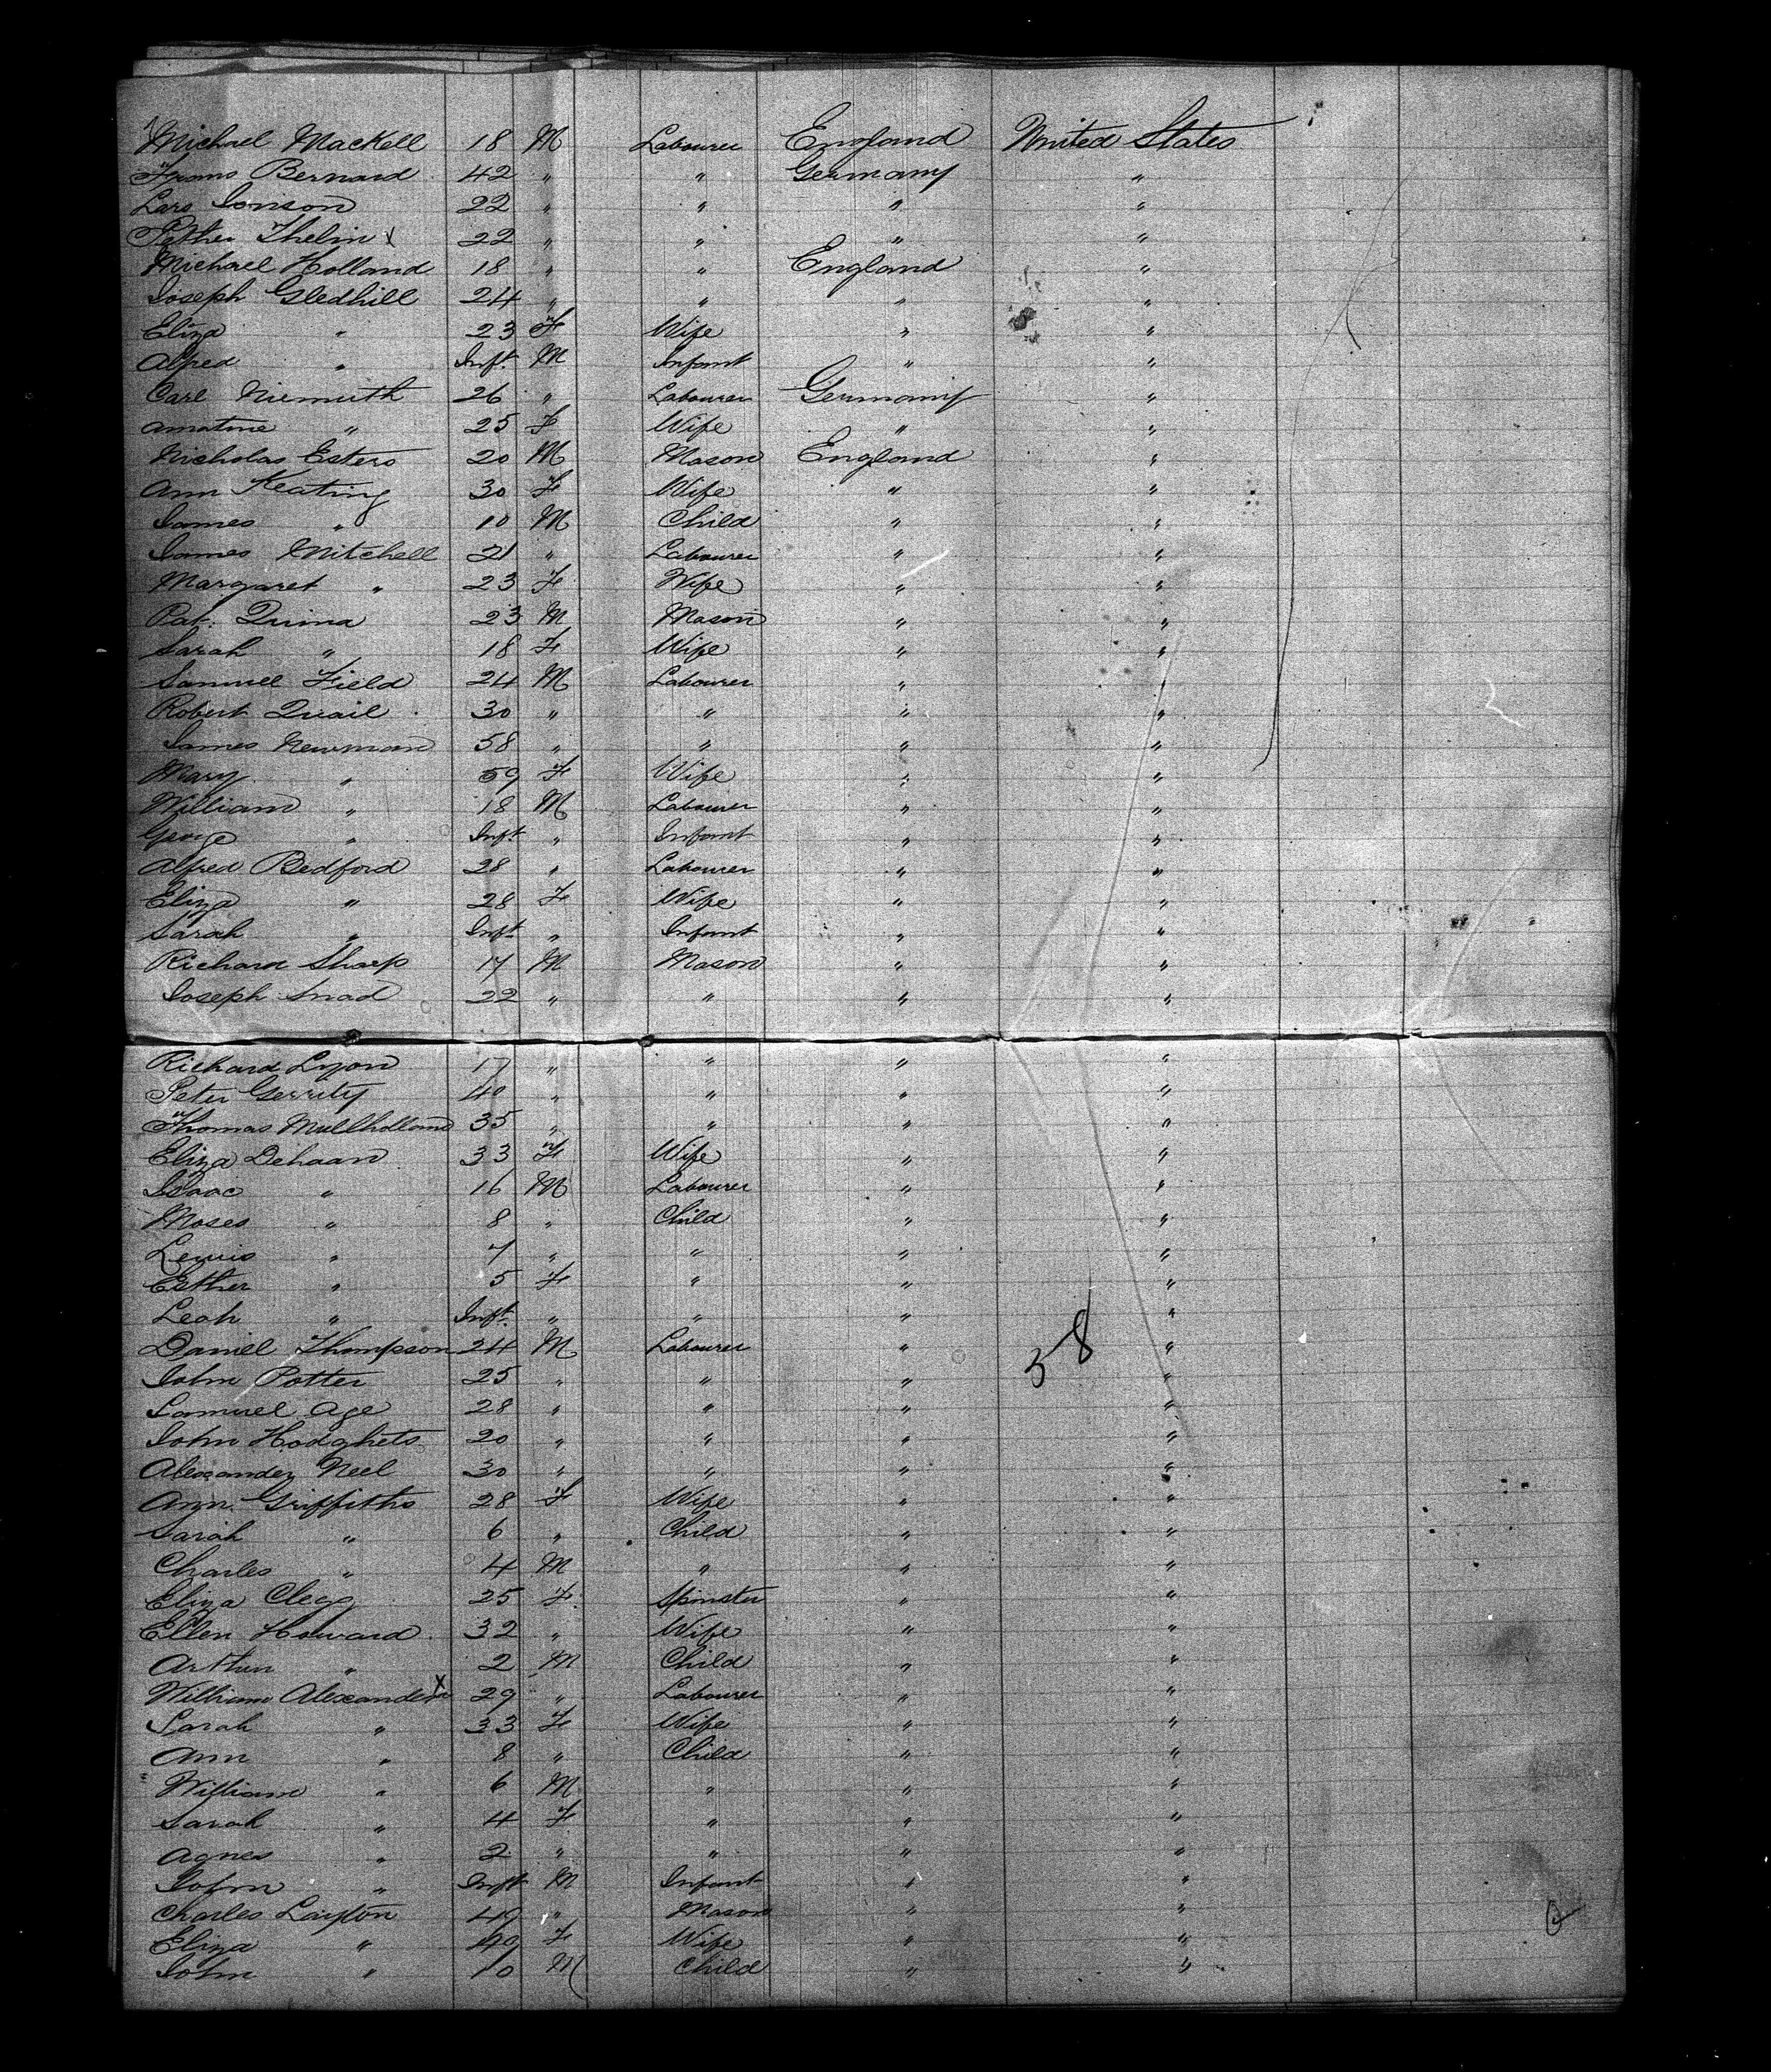 Michael Mackell 18 M Labourer England United States
Frans Bernard 42 " " Germany "
Lars Jonson 22 " " " "
Pether Thelin x 22 " " " "
Michael Holland 18 " " England "
Joseph Gledhill 24 " " " "
Eliza " 23 F Wife " "
Alfred " Inft. M Infant " "
Carl Niemuth 26 " Labourer Germany "
" 25 F Wife " "
Nicholas Esters 20 M Mason England "
Ann Keating 30 F Wife " "
James " 10 M Child " "
James Mitchell 21 " Labourer " "
Margaret " 23 F Wife " "
Pat. Quina 23 M Mason " "
Sarah " 18 F Wife " "
Samuel Field 24 M Labourer " "
Robert Quail 30 " " " "
James Newman 58 " " " "
Mary " 59 F Wife " "
William " 18 M Labourer " "
George " Inft. " Infant " "
Alfred Bedford 28 " Labourer " "
Eliza " 28 F Wife " "
Sarah " Inft. " Infant " "
Richard Sharp 17 M Mason " "
Joseph Snad 22 " " " "
Richard Lyon 17 " " " "
Peter Gerrity 40 " " " "
Thomas Mullholland 35 " " " "
Eliza Dehaan 33 F Wife " "
Isaac " 16 M Labourer " "
Moses " 8 " Child " "
Lewis " 7 " " " "
Esther " 5 F " " "
Leah " Inft. " " " "
Daniel Thompson 24 M Labourer " 58 "
John Potter 25 " " " "
Samuel Age 28 " " " "
John Hodghets 20 " " " "
Alexander Neel 30 " " " "
Ann Griffiths 28 F Wife " "
Sarah " 6 " Child " "
Charles " 4 M " " "
Eliza Clegg 25 F Spinster " "
Ellen Howard 32 " Wife " "
Arthur " 2 M Child " "
William Alexander x 29 " Labourer " "
Sarah " 33 F Wife " "
Ann " 8 " Child " "
William " 6 M " " "
Sarah " 4 F " " "
Agnes " 2 " " " "
John " Inft M Infant " "
Charles Layton 49 " Mason " "
Eliza " 40 F Wife " "
John " 10 M Child " "